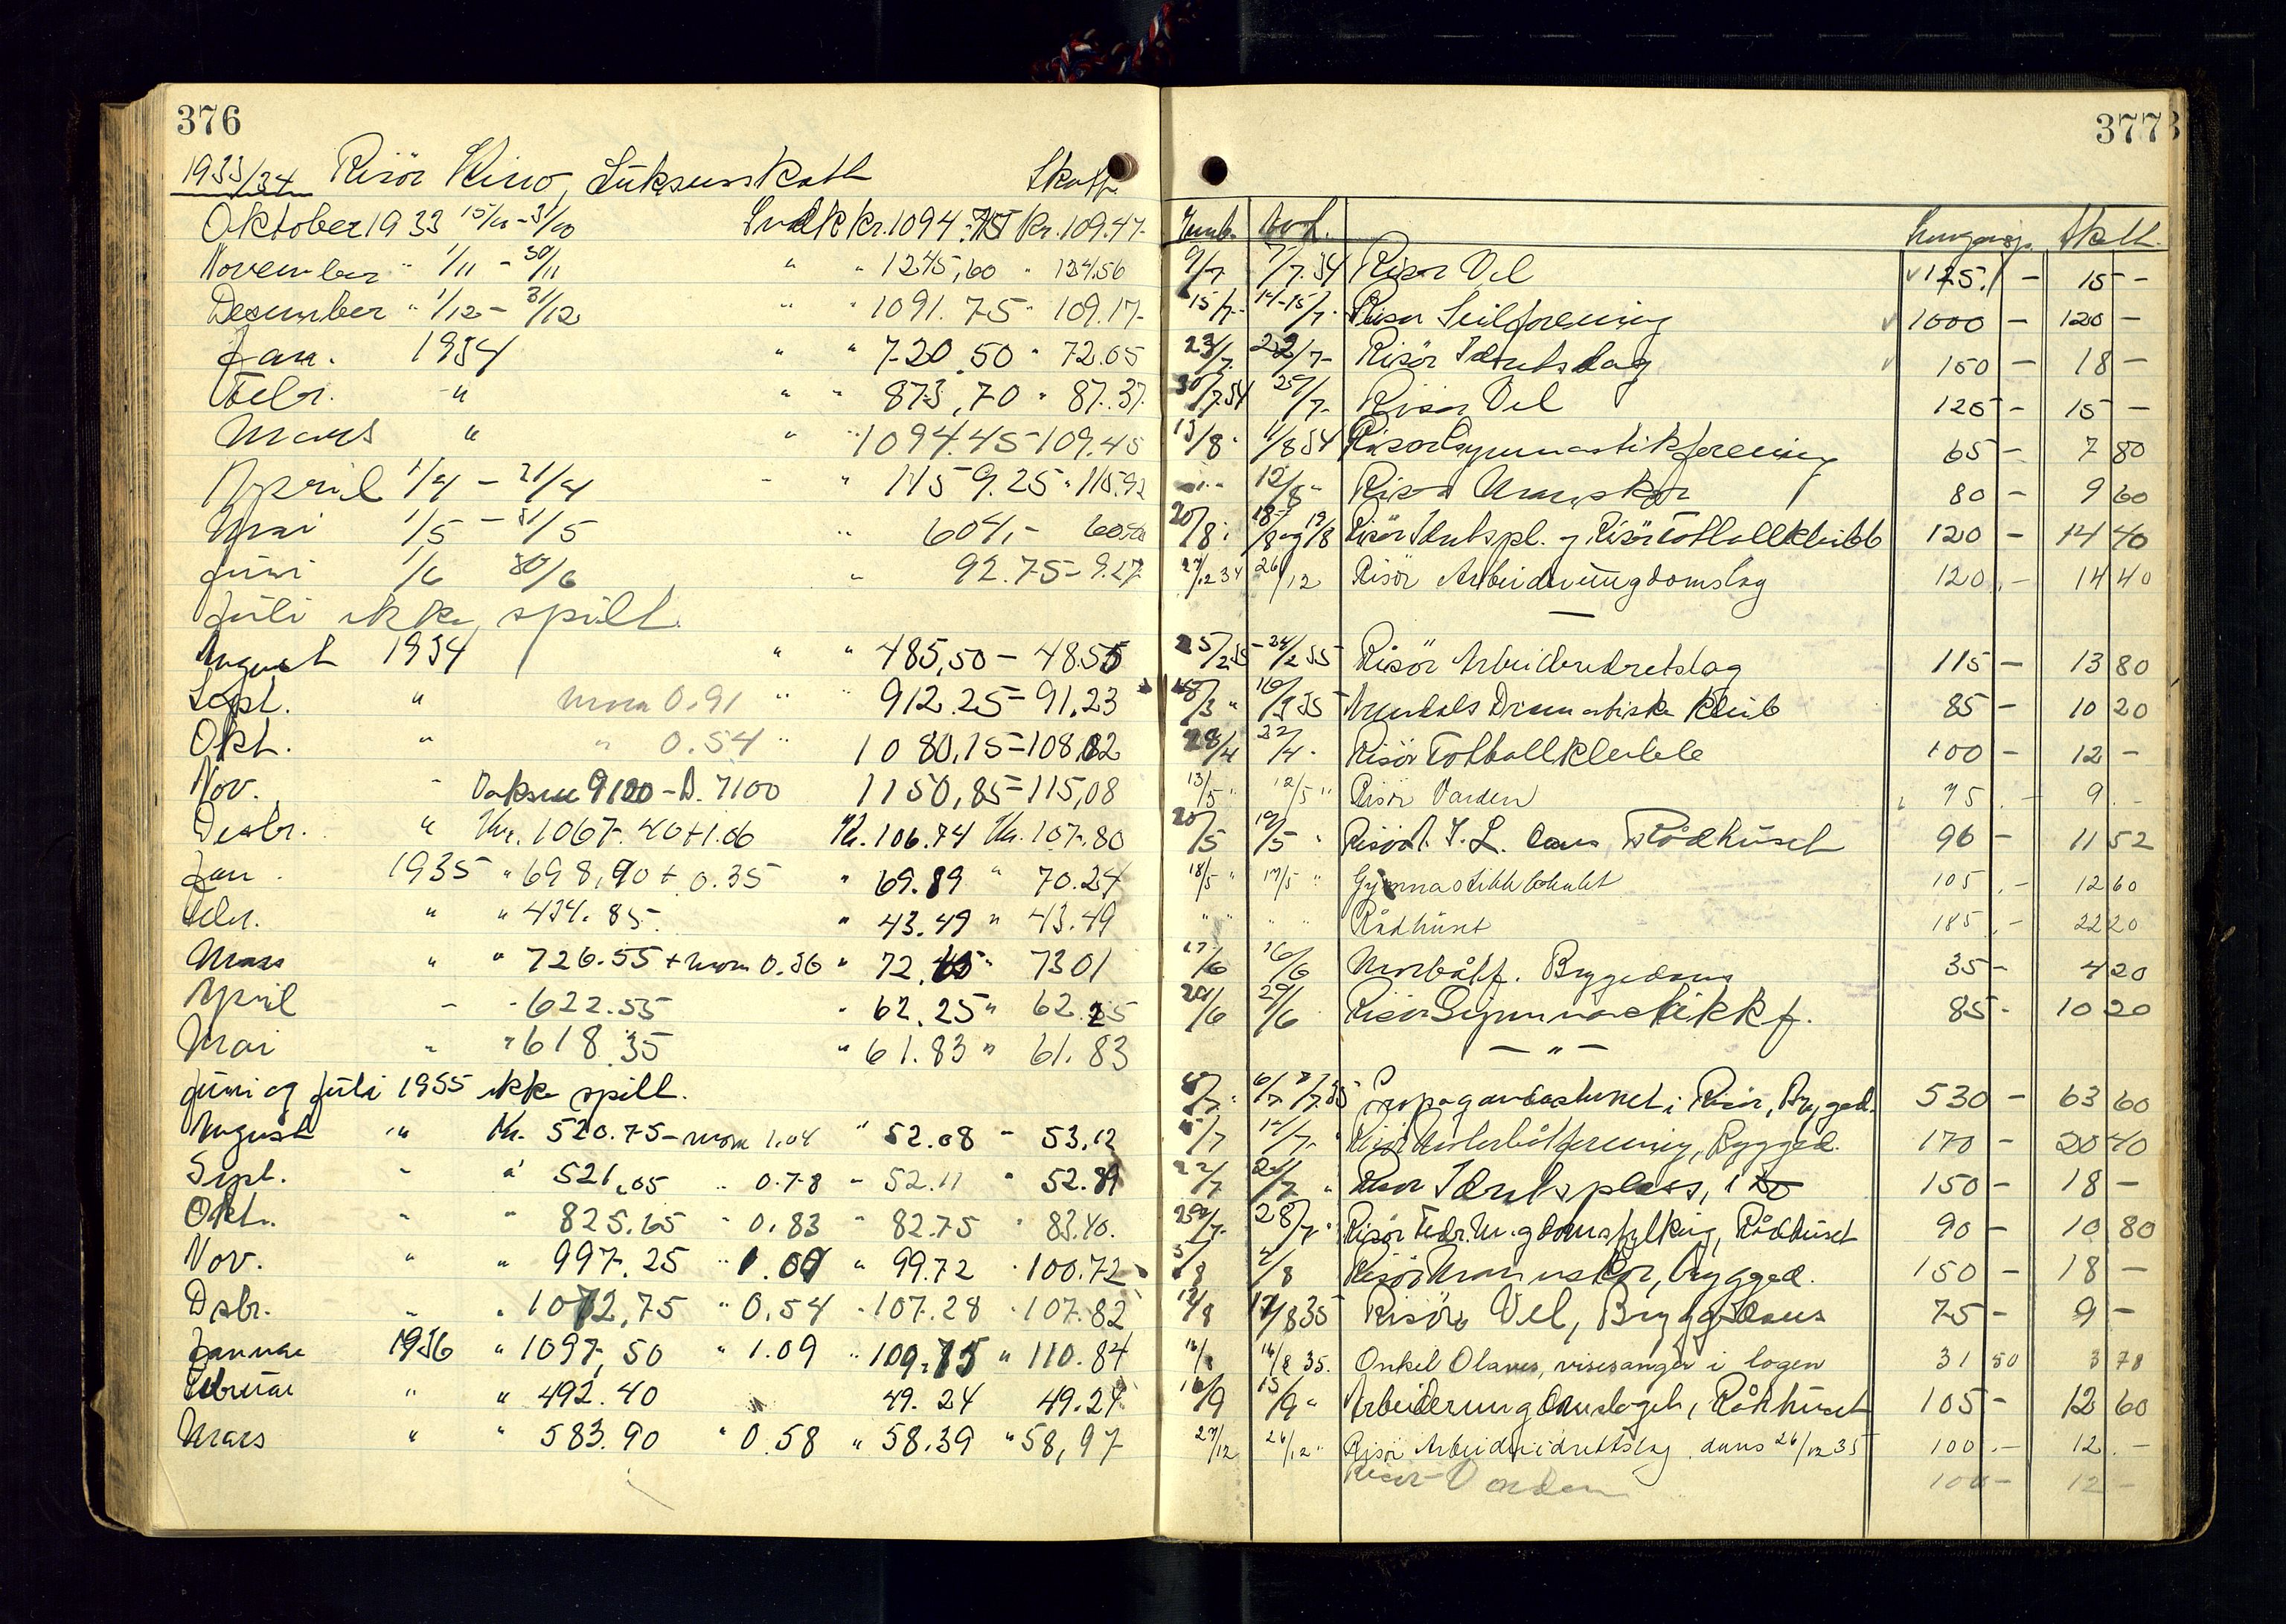 376
1933/34 Risör Kino, Luksusskatt Skatt
Oktober 1933 15/10 - 31/10 Kr. 1094.75 Kr. 109.47
November " 1/11 - 30/11 " " 1245,60 " 124.56
Desember " 1/12 - 31/12 " " 1091.75 " 109.17
Jan. 1934 " " 720.50 " 72.05
Febr. " " " 873,70 " 87.37
Mars " " " 1094.45 - 109.45
April 1/4 - 31/4 " " 1159.25 " 115.92
Mai 1/5 - 31/5 " 604,-
Juni 1/6 30/6 " 92.75 - 9.27
Juli ikke spilt.
August 1934 " " 485,50 - 48.55
Sept. " mva 0.91 " " 912.25 - 91.23
Okt. " " 0.54 " 1080,15 - 108,02
Nov. " Voksne 9120 - B. 7100 1150,85 - 115,08
Desbr. " Kr. 1067.40 + 1.06 Kr. 106.74 Kr. 107.80
Jan. 1935 " 698,90 + 0.35 " 69.89 " 70.24
Febr. " " 434.85 " 43.49 " 43.49
Mars " " 726.55 + mom 0.36 " 72.65 " 73 01
April - - 622.55 " 62.25 " 62.25
Mai " " 618.35 " 61.83 " 61.83
Juni og Juli 1935 ikke spilt.
August " Kr. 520.75 - mom 1.04 " 52.08 - 53.12
Sept. " " 521,05 " 0.78 " 52.11 " 52.89
Okt. " " 825.65 " 0.83 " 82.75 " 83.40.
Nov. " " 997.25 " 1.00 " 99.72 " 100.72
Dsbr. " " 1072,75 " 0.54 " 107.28 " 107.82
Januar 1936 " 1097,50 " 1.09 " 109.75 " 110.84
Februar " " 492.40 49.24 49.24
Mars " " 583.90 " 0.58 " 58.39 " 58,97
377
Innb. Avh. Skatt.
9/7 7/7.34 Risør Vel 125.- 15 -
15/7 14-15/7 Risør Seilforening 1000 - 120 -
23/7. 22/7 - Risör Idrætslag 150 - 18 -
30/7.34 29/7 - Risør Vel 125 - 15 -
13/8 11/8 34 Risør Gymnastikforening 65 - 7 80
12/8 " Risør Mannskor 80 - 9 60
20/8 18/8 og 19/8 Risör Idrætspl. og Risör Fotballklubb 120 - 14 40
27/12 34 26/12 Risör Arbeiderungdomslag 120.- 14 40
25/2.35 - 24/2 35 Risör Arbeideridretslag 115 - 13 80
18/3 " 16/3 35 Arendals Dramatiske Klub 85 - 10 20
28/4 22/4 - Risör Fotballklubb 100 - 12 -
13/5 " 12/5 " Risör Varden 75.- 9.-
20/5 19/5 " I.L. dans Rådhuset 96 - 11 52
18/5 " 17/5 " Gymnastikklokalet 105.- 12 60
" " " " Rådhuset 185.- 22 20
17/6 16/6 Motorbåtf. Bryggedans 35 - 4 20
24/6 Risör Gymnastikkf. 85 - 10 20
- " -
8/7 6/7 7/7.35 Propagandastevnet i Risør, Brygged. 530 - 63 60
15/7 14/7 " Risör Motorbåtforening, Brygged. 170 - 20 40
22/7 " Risør Idretsplass, 150 - 18 -
29/7 28/7 " Risör Fedr. Ungdomsfylking, Rådhuset 90 - 10 80
5/8 Risör Mannskor, brygged. 150 - 18 -
12/8 8 35 Risör Vel, Bryggedans 75 - 9 -
16/8 16/8 35. Onkel Olaves, visesanger i logen 31 50 3 78
16/9 15/9 " Arbeiderungdomslaget, Rådhuset 105 - 12 60
27/12 26/12 " Risör Arbeideridrettslag. dans 26/12 35 100.- 12.-
Risør Varden 100 - 12 -